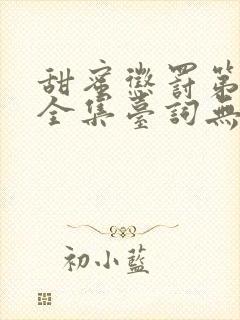 甜蜜懲罰第
全集臺詞無
初小藍